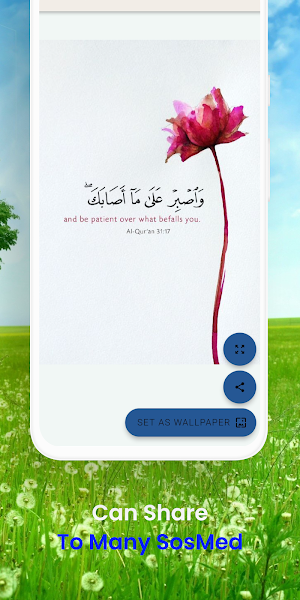 وَٱصۡبِرۡ عَلَىٰ مَآ أَصَابَكَۖ
and be patient over what befalls you.
Al-Qur'an 31:17
SET AS WALLPAPER
Can Share
To Many SosMed